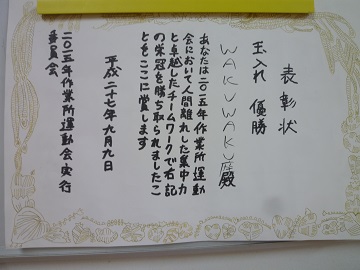 表彰状
玉入れ 優勝
WAKUWAKU座殿
あなたは二〇一五年作業所運動
会において人間離れした集中力
と卓越したチームワークで右記
の栄冠を勝ち取られましたこ
とをここに賞します
平成二十七年九月九日
二〇一五年作業所運動会実行
委員会